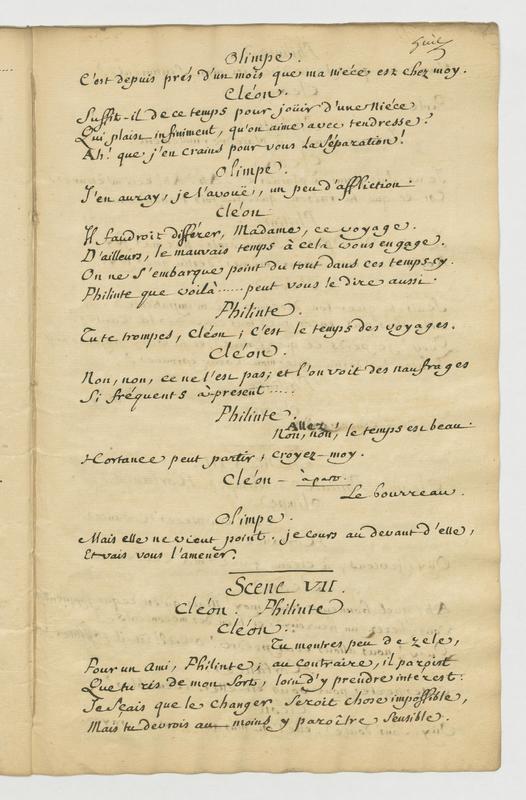 Olimpe.
C'est depuis prés d'un mois que ma niéce est chez moy.
Cléon.
Suffit-il de ce temps pour joüir d'une niéce
Qui plaist infiniment, qu'on aime avec tendresse?
Ah! que j'en crains pour vous la séparation!
Olimpe.
J'en auray, je l'avouë, un peu d'affliction.
Cléon
Il faudroit différer, Madame, ce voyage.
D'ailleurs, le mauvais temps à cela vous engage.
On ne s'embarque point du tout dans ces temps-cy.
Philinte que voilà...... peut vous le dire aussi.
Philinte.
Tu te trompes, Cléon; c'est le temps des voyages.
Cléon.
Non, non, ce ne l'est pas; et l'on voit des naufrages
Si fréquents à-présent.....
Philinte.
Allez
Non, non, le temps est beau.
Hortance peut partir; croyez-moy.
Cléon - à part.
Le bourreau.
Olimpe.
Mais elle ne vient point. je cours au devant d'elle,
Et vais vous l'amener.
Scene VII.
Cléon. Philinte
Cléon.
Tu montres peu de zele,
Pour un ami, Philinte; au contraire, il paroist
Que tu ris de mon sort, loin d'y prendre interest.
Je sçais que le changer seroit chose impossible,
Mais tu devrois au moins y paroître sensible.